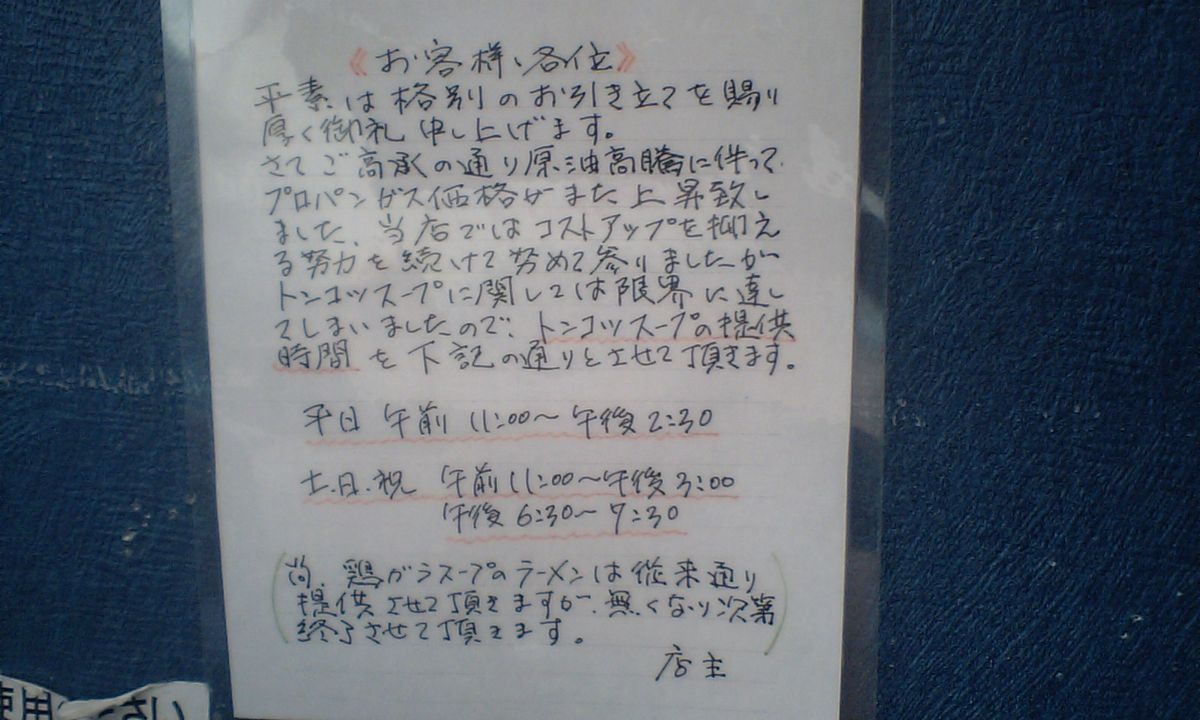 《お客様各位》
平素は格別のお引き立てを賜り
厚く御礼申し上げます。
さてご高承の通り原油高騰に伴って
プロパンガス価格がまた上昇致し
ました、当店ではコストアップを抑え
る努力を続けて努めて参りましたが
トンコツスープに関しては限界に達し
てしまいましたので、トンコツスープの提供
時間を下記の通りとさせて頂きます。
平日 午前 11:00〜午後2:30
土.日.祝 午前11:00〜午後3:00
午後6:30〜7:30
(尚、鶏ガラスープのラーメンは従来通り
提供させて頂きますが、無くなり次第
終了させて頂きます。)
店主